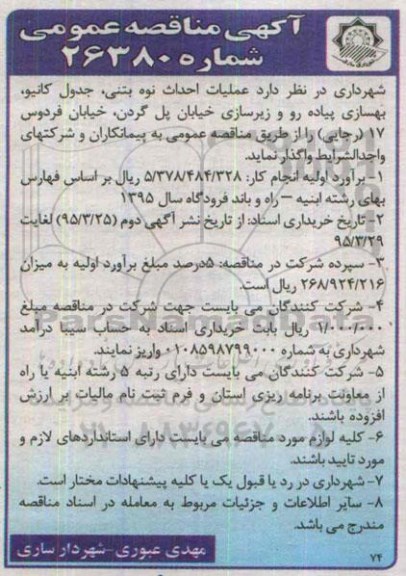 آگهی مناقصه عمومی
شماره ۲۶۳۸۰
شهرداری در نظر دارد عملیات احداث نوه بتنی، جدول کانیو،
بهسازی پیاده رو و زیرسازی خیابان پل گردن، خیابان فردوس
۱۷ (رجایی) را از طریق مناقصه عمومی به پیمانکاران و شرکتهای
واجدالشرایط واگذار نماید.
۱- برآورد اولیه انجام کار: ۵/۳۷۸/۴۸۴/۳۲۸ ریال بر اساس فهارس
بهای رشته ابنیه – راه و باند فرودگاه سال ۱۳۹۵
۲- تاریخ خریداری اسناد: از تاریخ نشر آگهی دوم (۹۵/۳/۲۵) لغایت
۹۵/۳/۲۹
۳- سپرده شرکت در مناقصه: ۵درصد مبلغ برآورد اولیه به میزان
۲۶۸/۹۲۴/۲۱۶ ریال است.
۴- شرکت کنندگان می بایست جهت شرکت در مناقصه مبلغ
۱/۰۰۰/۰۰۰ ریال بابت خریداری اسناد به حساب سیبا درآمد
شهرداری به شماره ۰۱۰۸۵۹۸۷۹۹۰۰۰ واریز نمایند.
۵- شرکت کنندگان می بایست دارای رتبه ۵ رشته ابنیه یا راه
از معاونت برنامه ریزی استان و فرم ثبت نام مالیات بر ارزش
افزوده باشند.
۶- کلیه لوازم مورد مناقصه می بایست دارای استانداردهای لازم و
مورد تایید باشند.
۷- شهرداری در رد یا قبول یک یا کلیه پیشنهادات مختار است.
۸- سایر اطلاعات و جزئیات مربوط به معامله در اسناد مناقصه
مندرج می باشد.
مهدی عبوری-شهردار ساری
۷۴